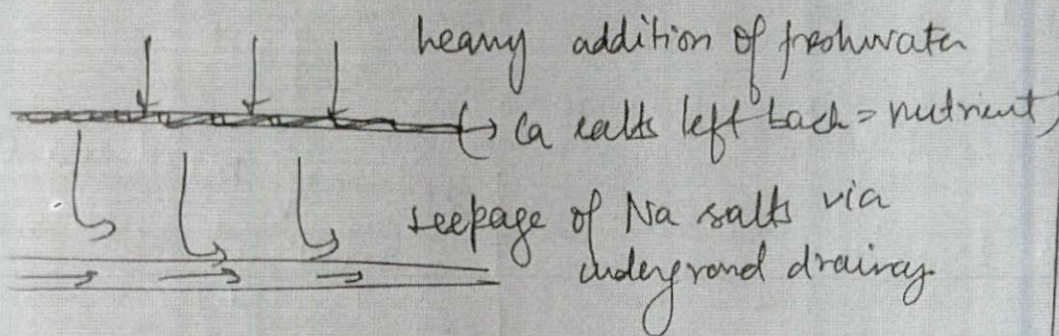 heavy addition of freshwater
Ca salts left back = nutrient
seepage of Na salts via
underground drainage